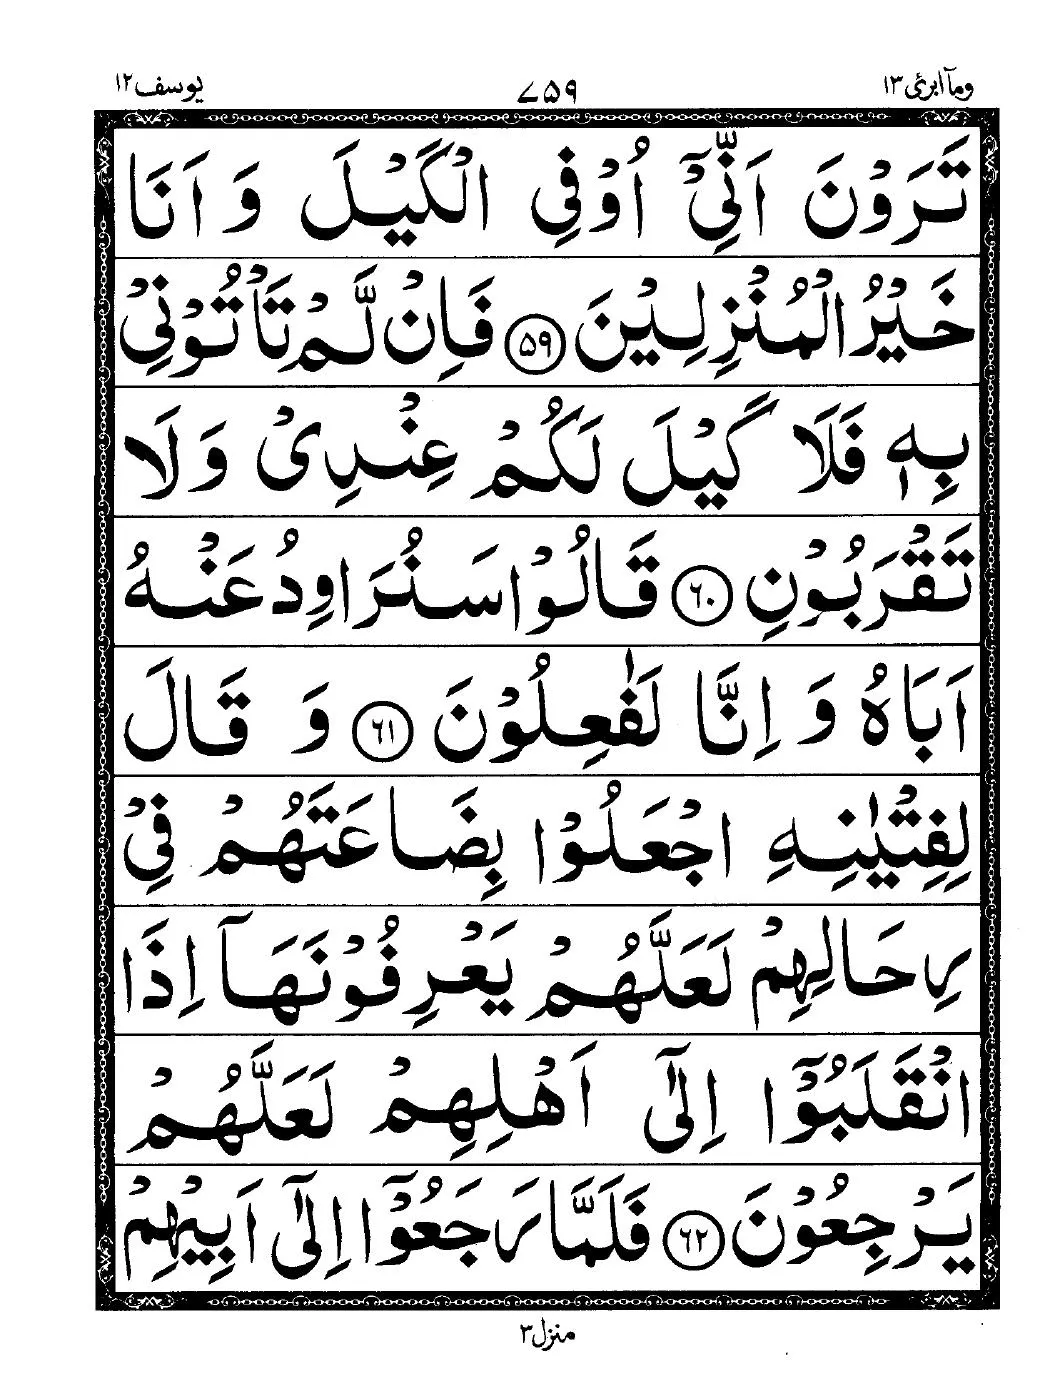 ومآ ابرئ ۱۳
۷۵۹
یوسف ۱۲
تَرَوْنَ اَنِّیْۤ اُوْفِی الْكَیْلَ وَ اَنَا
خَیْرُ الْمُنْزِلِیْنَ ۵۹ فَاِنْ لَّمْ تَاْتُوْنِیْ
بِهٖ فَلَا كَیْلَ لَكُمْ عِنْدِیْ وَ لَا
تَقْرَبُوْنِ ۶۰ قَالُوْا سَنُرَاوِدُ عَنْهُ
اَبَاهُ وَ اِنَّا لَفٰعِلُوْنَ ۶۱ وَ قَالَ
لِفِتْیٰنِهِ اجْعَلُوْا بِضَاعَتَهُمْ فِیْ
رِحَالِهِمْ لَعَلَّهُمْ یَعْرِفُوْنَهَاۤ اِذَا
انْقَلَبُوْۤا اِلٰۤی اَهْلِهِمْ لَعَلَّهُمْ
یَرْجِعُوْنَ ۶۲ فَلَمَّا رَجَعُوْۤا اِلٰۤی اَبِیْهِمْ
منزل ۳